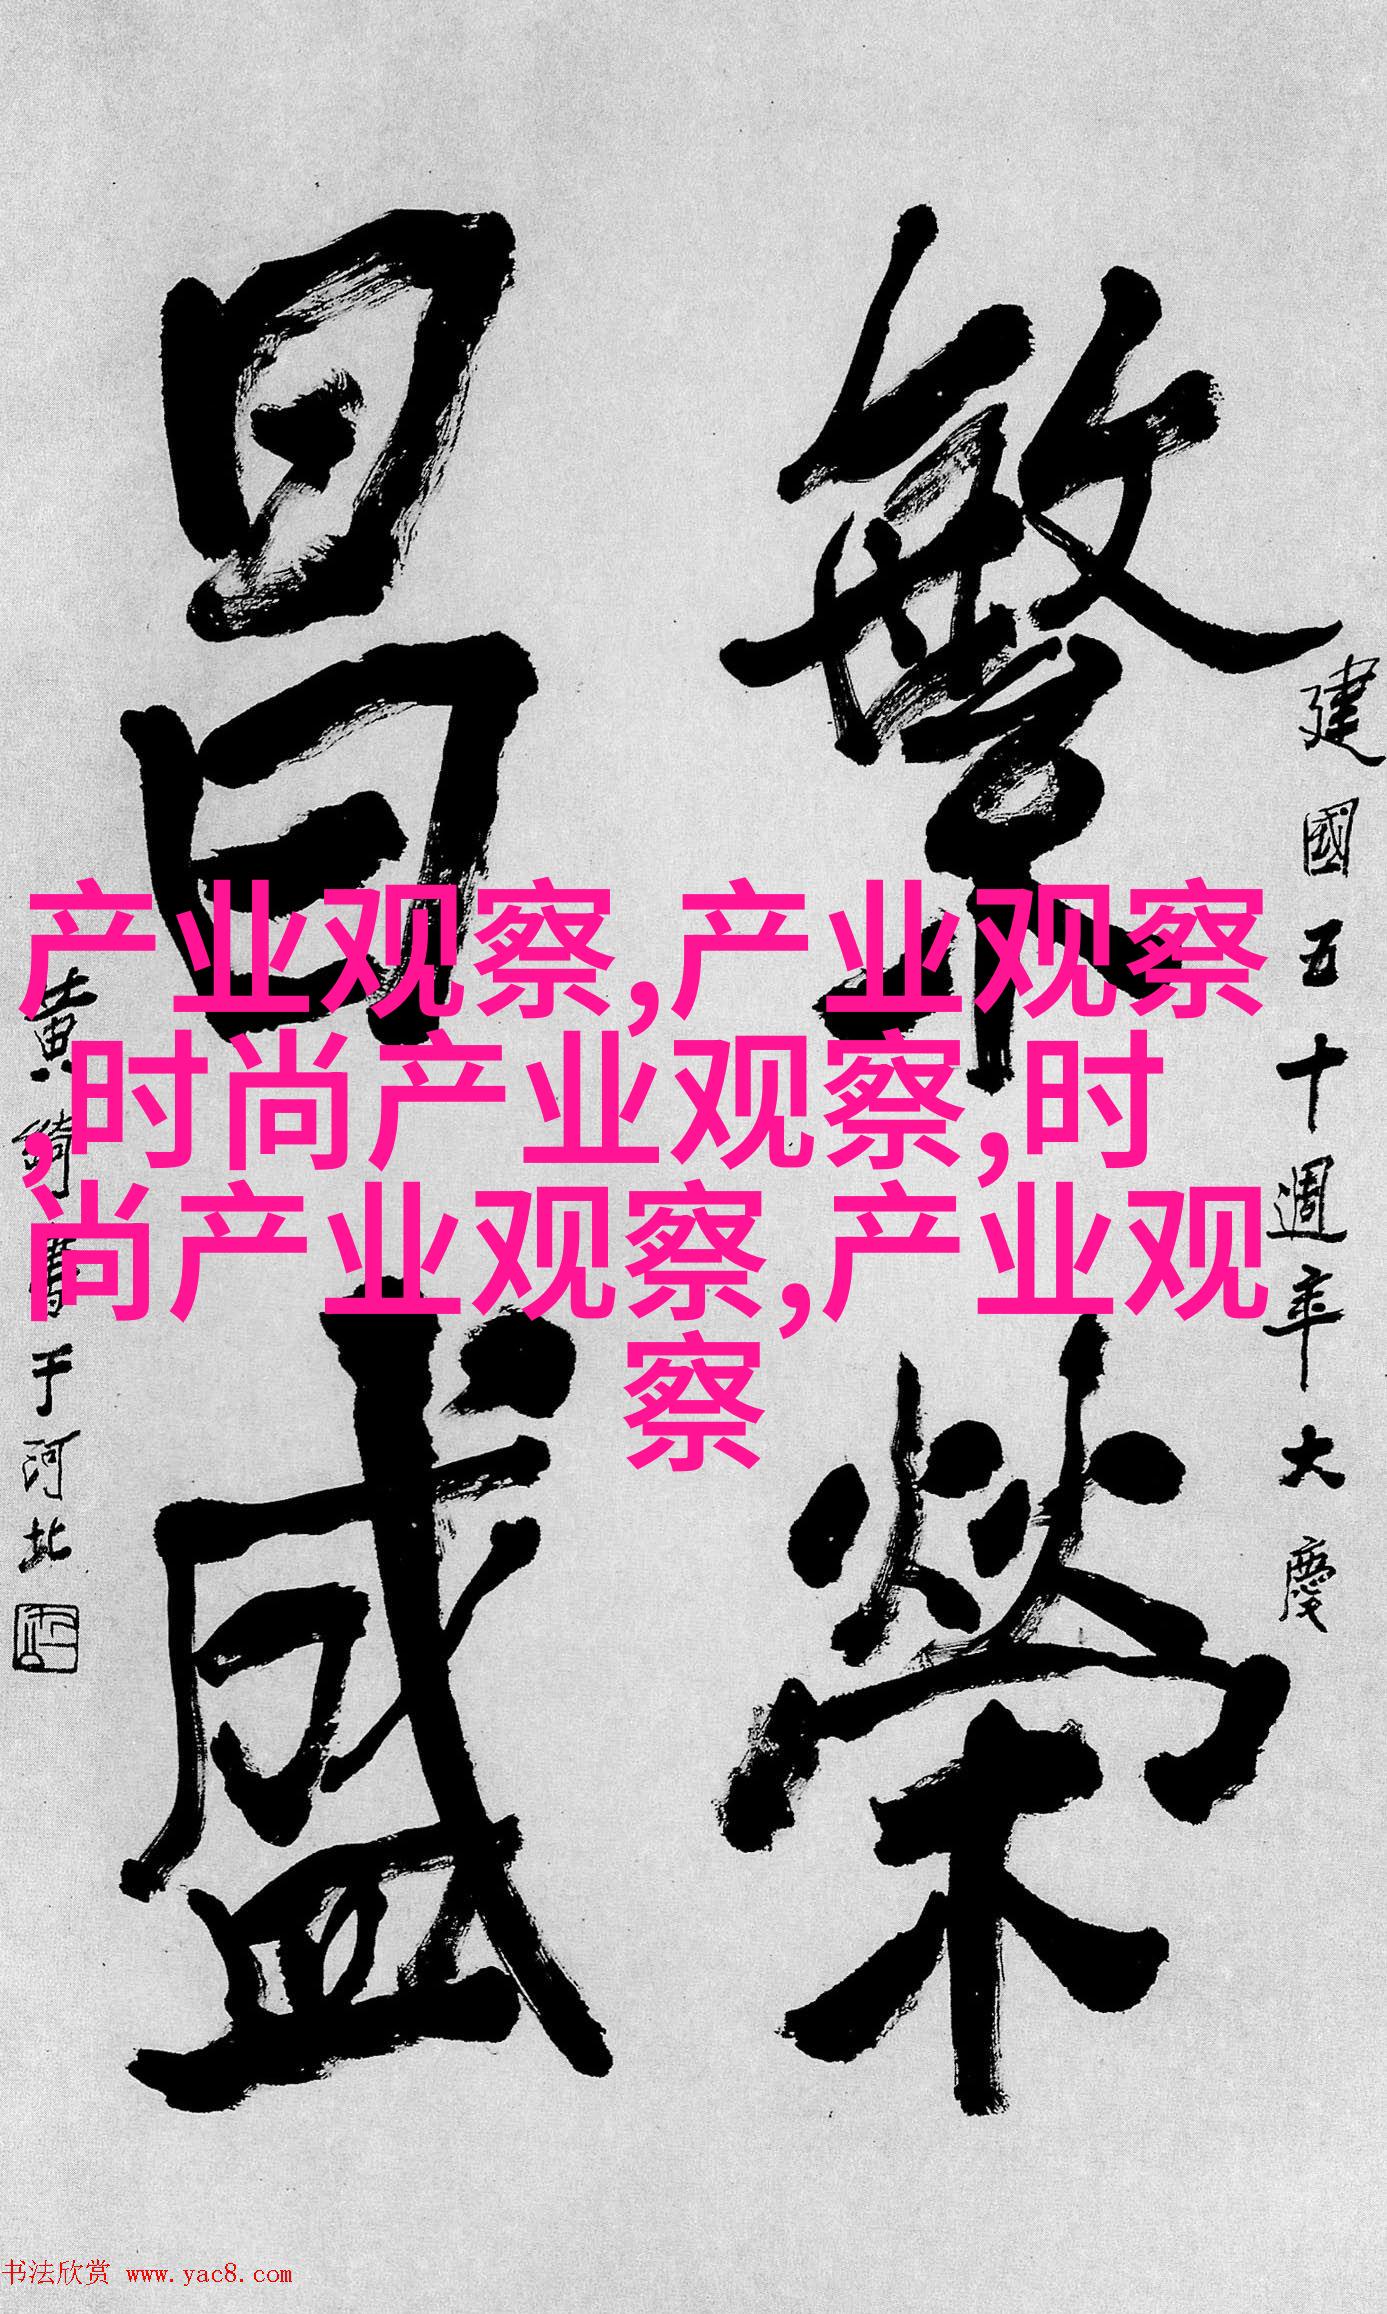 繁榮
昌盛
建國五十週年大慶
黄綺書于河北
产业观察,产业观察
,时尚产业观察,时
尚产业观察,产业观
察
书法欣赏 www.yac8.com